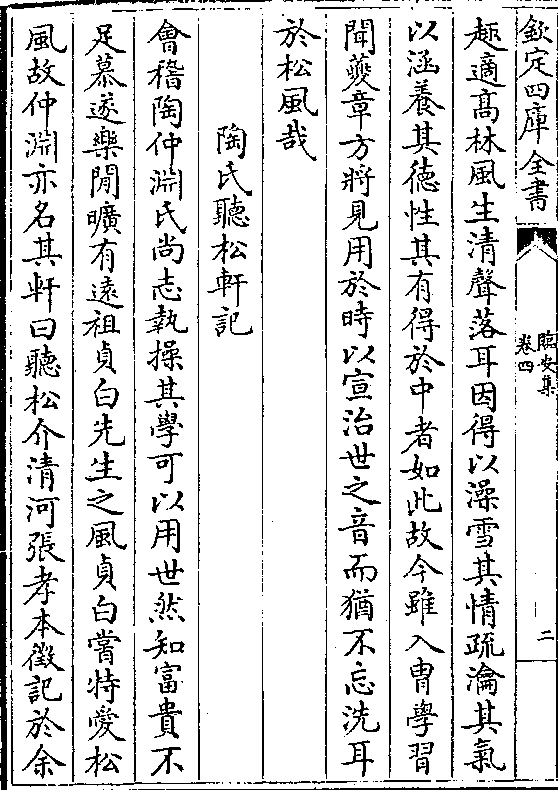 欽定四庫全書
臨安集
卷四
二
趣適髙林風生清聲落耳因得以澡雪其情疏瀹其氣
以涵養其徳性其有得於中者如此故今雖入胄學習
聞夔章方將見用於時以宣治世之音而猶不忘洗耳
於松風哉
陶氏聽松軒記
㑹稽陶仲淵氏尚志執操其學可以用世然知富貴不
足慕遂樂閒曠有遠祖貞白先生之風貞白嘗特愛松
風故仲淵亦名其軒曰聽松介清河張孝本徵記於余